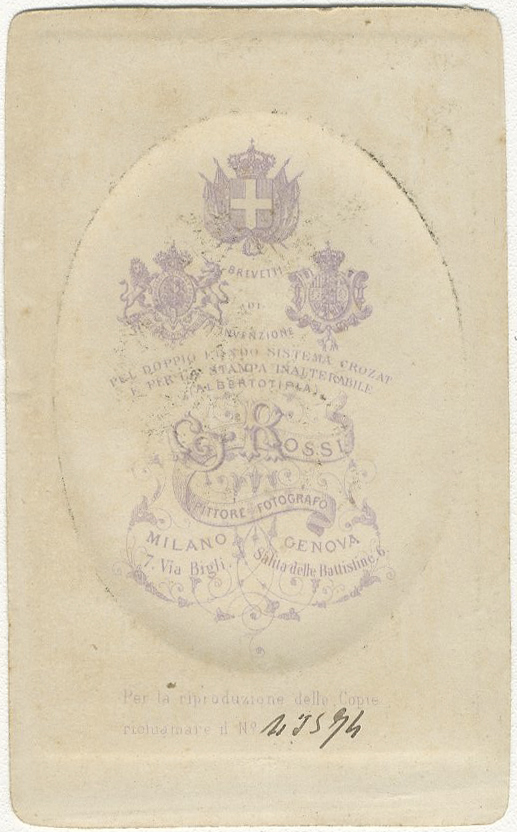 BREVETTI
DI
INVENZIONE
PEL DOPPIO FONDO SISTEMA CROZAT
E PER LA STAMPA INALTERABILE
(ALBERTOTIPIA)
G. ROSSI
PITTORE FOTOGRAFO
MILANO GENOVA
7. Via Bigli. Salita delle Battistine, 6.
Per la riproduzione delle Copie
richiamare il Nº